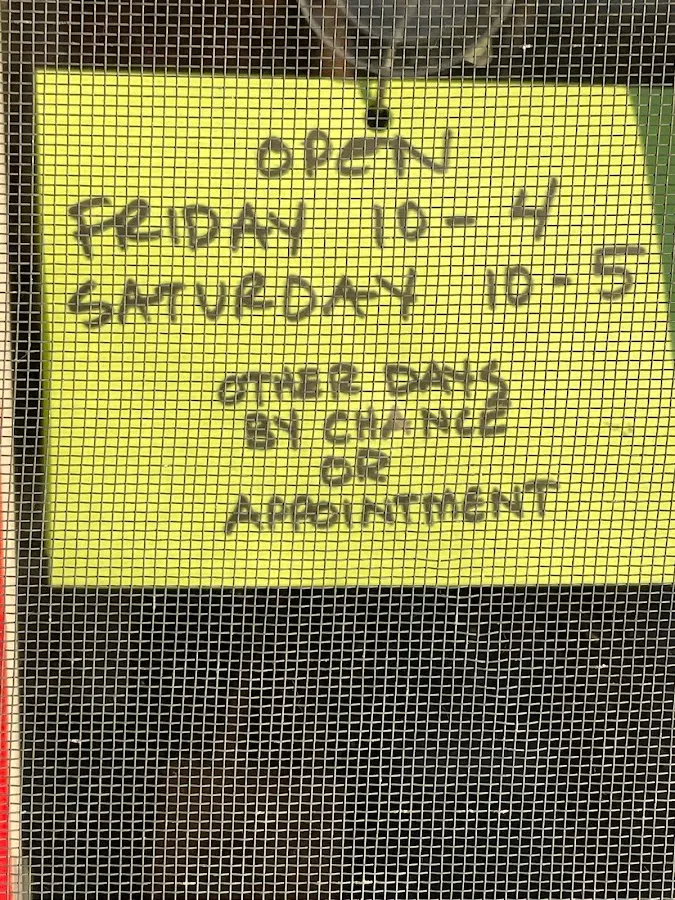 OPEN
FRIDAY 10-4
SATURDAY 10-5
OTHER DAYS
BY CHANCE
OR
APPOINTMENT